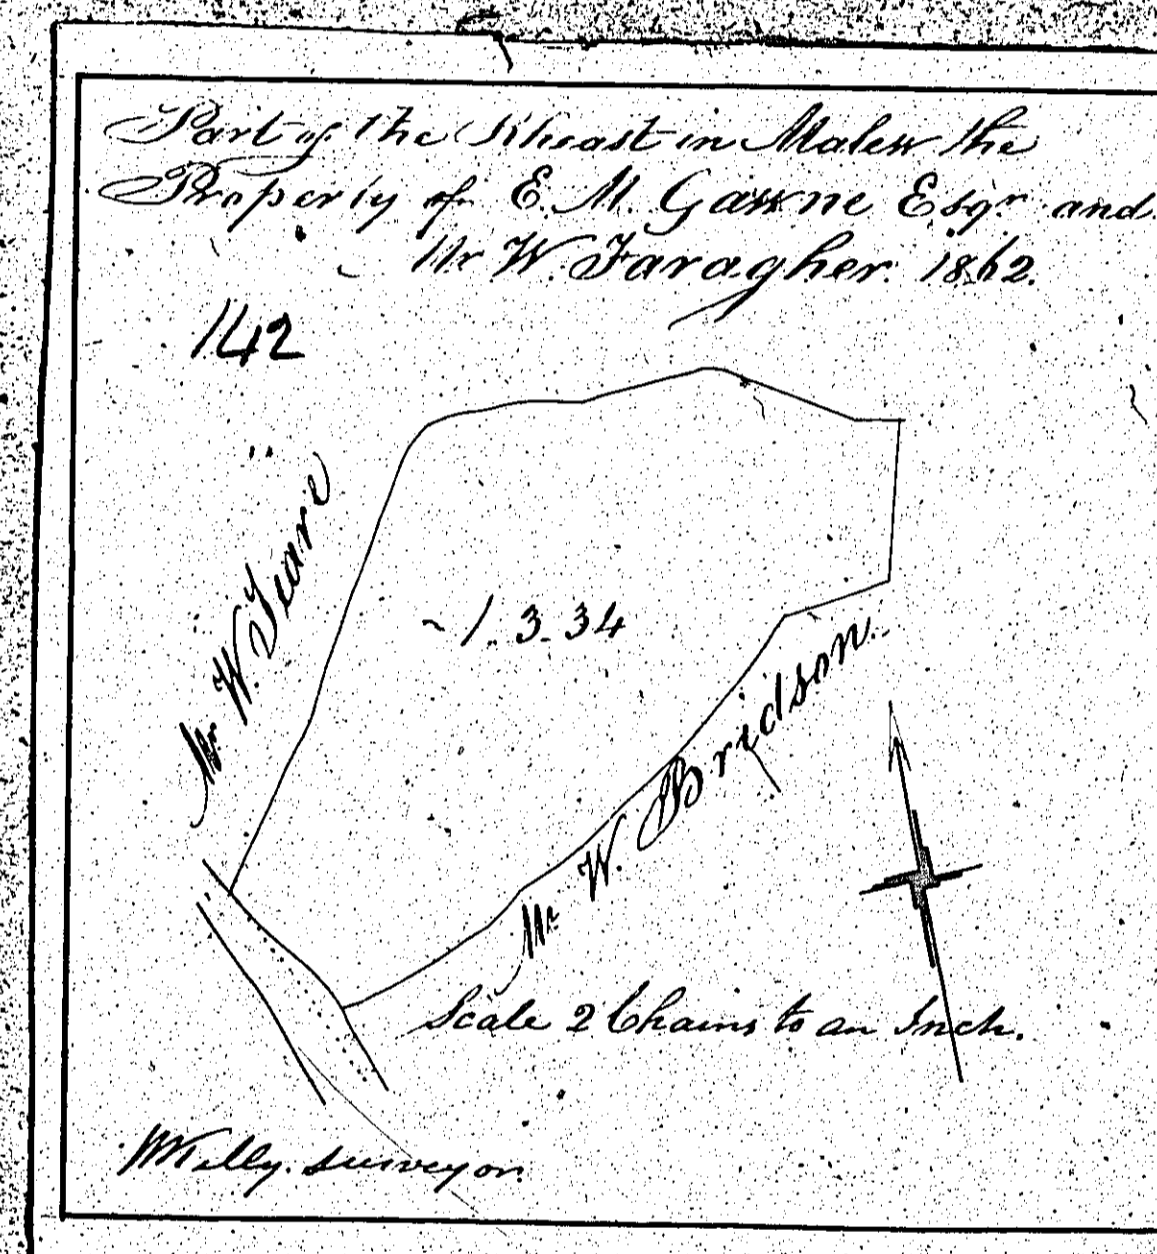 Part of the Rheast in Malew the
Property of E. M. Gawne Esqr. and
Mr W. Faragher. 1862.
142
Mr. W. Teare
1. 3. 34
Mr W. Bridson.
Scale 2 Chains to an Inch.
W Kelly. surveyor.